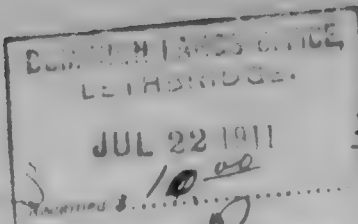 DOMINION LANDS OFFICE,
LETHBRIDGE.
JUL 22 1911
Received $ 10.00